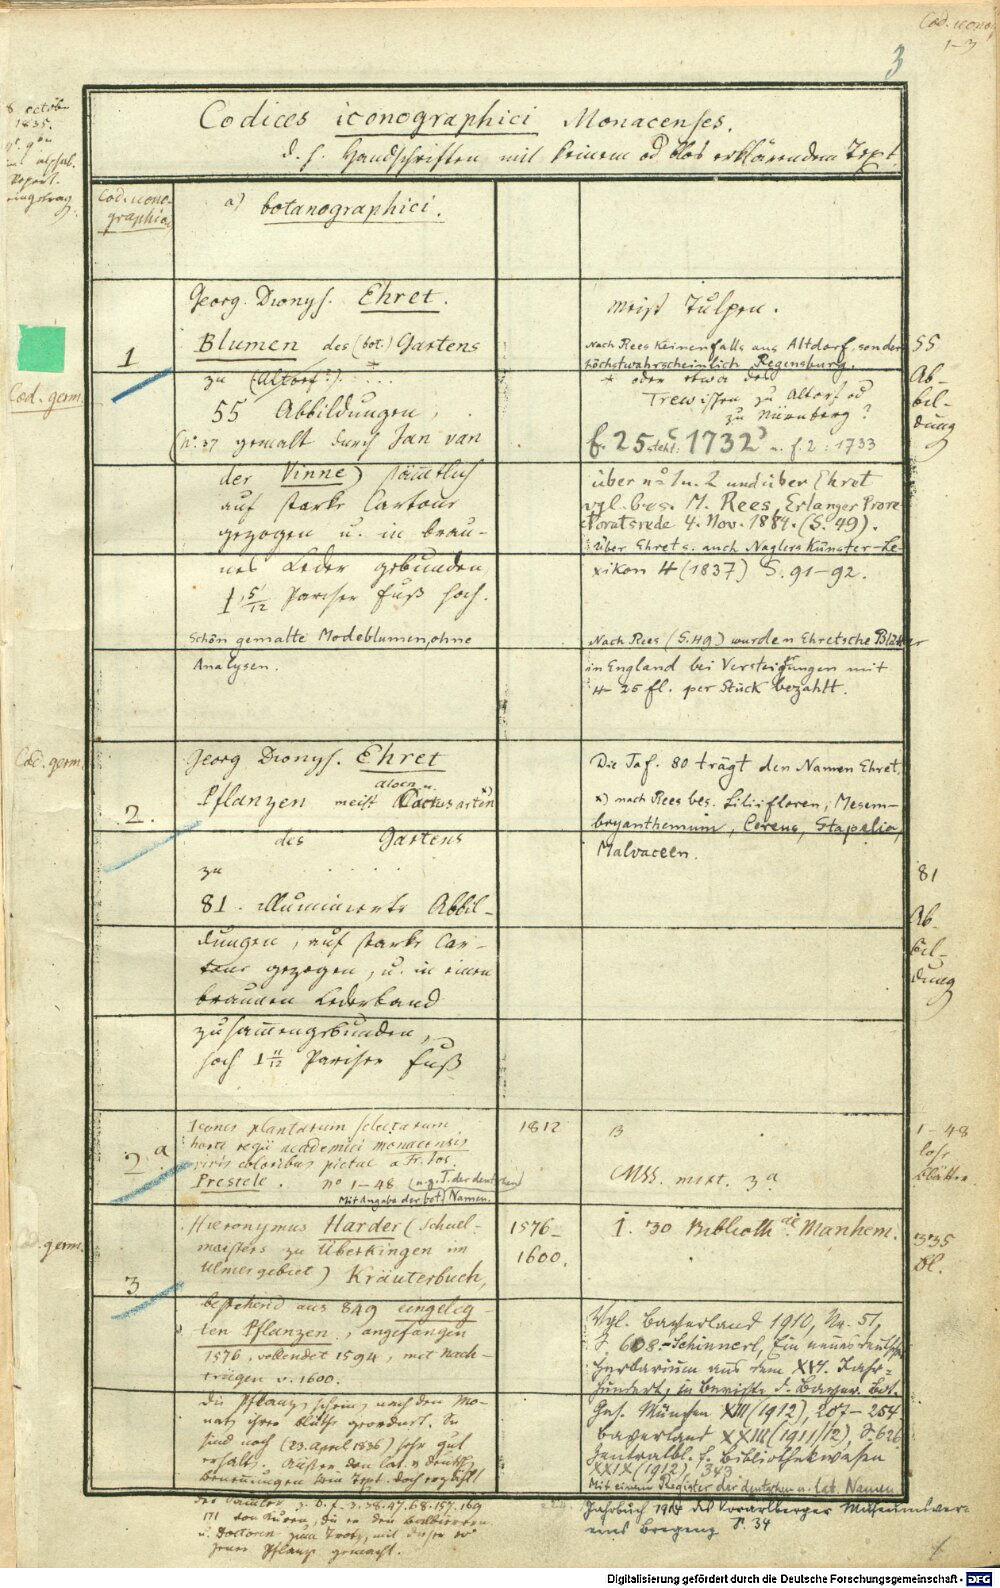 Cod. icono
1–3
3
8 octobr
1835.
Codices iconographici Monacenses.
d. h. Handschriften mit keinem od blos erklärendem Text.
Cod. icono-
graphic
a) botanographici.
Georg. Dionys. Ehret.
Meist Tulpen.
1
Blumen des (bot.) Gartens
zu (Altorf?)
55 Abbildungen,
(No. 37 gemalt durch Jan van
der Vinne) sämmtlich
auf starke Cartons
gezogen u. in brau-
nes Leder gebunden,
1 5/12 Pariser Fuß hoch.
Schön gemalte Modeblumen, ohne
Analysen.
Nach Rees keinenfalls aus Altdorf, sondern
höchstwahrscheinlich Regensburg.
* oder etwa des
Trew'ischen zu Altorf od
zu Nürnberg?
f. 25 steht 1732 u. f. 2: 1733
über no 1 u. 2 und über Ehret
vgl. bes. M. Rees, Erlanger Prore
ktoratsrede 4. Nov. 1884. (S. 49).
über Ehret s. auch Naglers Künstler-Le-
xikon 4 (1837) S. 91–92.
Nach Rees (S. 49) wurden Ehretsche Blätter
in England bei Versteigerungen mit
4–25 fl. per Stück bezahlt.
55
Ab-
bil-
dung
Cod. germ.
Cod. germ.
2.
Georg Dionys. Ehret
Aloen u.
Pflanzen meist Cactusarten x)
des Gartens
zu . . . .
81. illuminierte Abbil-
dungen, auf starke Car-
tons gezogen, u. in einen
braunen Lederband
zusammengebunden,
hoch 1 11/12 Pariser Fuß
Die Taf. 80 trägt den Namen Ehret.
x) nach Rees bes. Liliifloren, Mesem-
bryanthemum, Cereus, Stapelia,
Malvaceen.
81
Ab-
bil-
dung
2 a
Icones plantarum selectarum
horti regii academici monacensis
vivis coloribus pictae a Fr. Jos.
Prestele. no 1–48
Mit Angabe der bot. Namen.
1812
Mss. mixt. 3a
1–48
lose
Blätter
germ.
3
Hieronymus Harder (Schul-
meisters zu Überkingen im
Ulmer gebiet) Kräuterbuch,
bestehend aus 849 eingeleg-
ten Pflanzen, angefangen
1576, vollendet 1594, mit Nach-
trägen v. 1600.
die Pflanzen scheinen nach den Mo-
naten ihrer Blüthe geordnet. Sie
sind noch (23. April 1836) sehr gut
erhalten. Außer den lat. u. deutschen
Benennungen kein Text. Doch erzählt
der Samler z. B. f. 2. 38. 47. 68. 157. 169
171 von Kuren, die er den Balbierern
u. Doctoren zum Trotz, mit dieser od
jener Pflanze gemacht.
1576–
1600.
I. 30 Biblioth. Manhem.
335
Bl.
Vgl. Bayerland 1910, Nr. 51,
S. 608 – Schinnerl, Ein neues deutsches
Herbarium aus dem XVI. Jahr-
hundert, in Berichte d. Bayer. Bot.
Ges. München XIII (1912), 207–254
Bayerland XXIII (1911/12), S. 626
Zentralbl. f. Bibliothekwesen
XXIX (1912), 343
Mit einem Register der deutschen u. lat. Namen
Jahrbuch 1914 des Vorarlberger Museumsver-
eins Bregenz S. 34
Digitalisierung gefördert durch die Deutsche Forschungsgemeinschaft - DFG